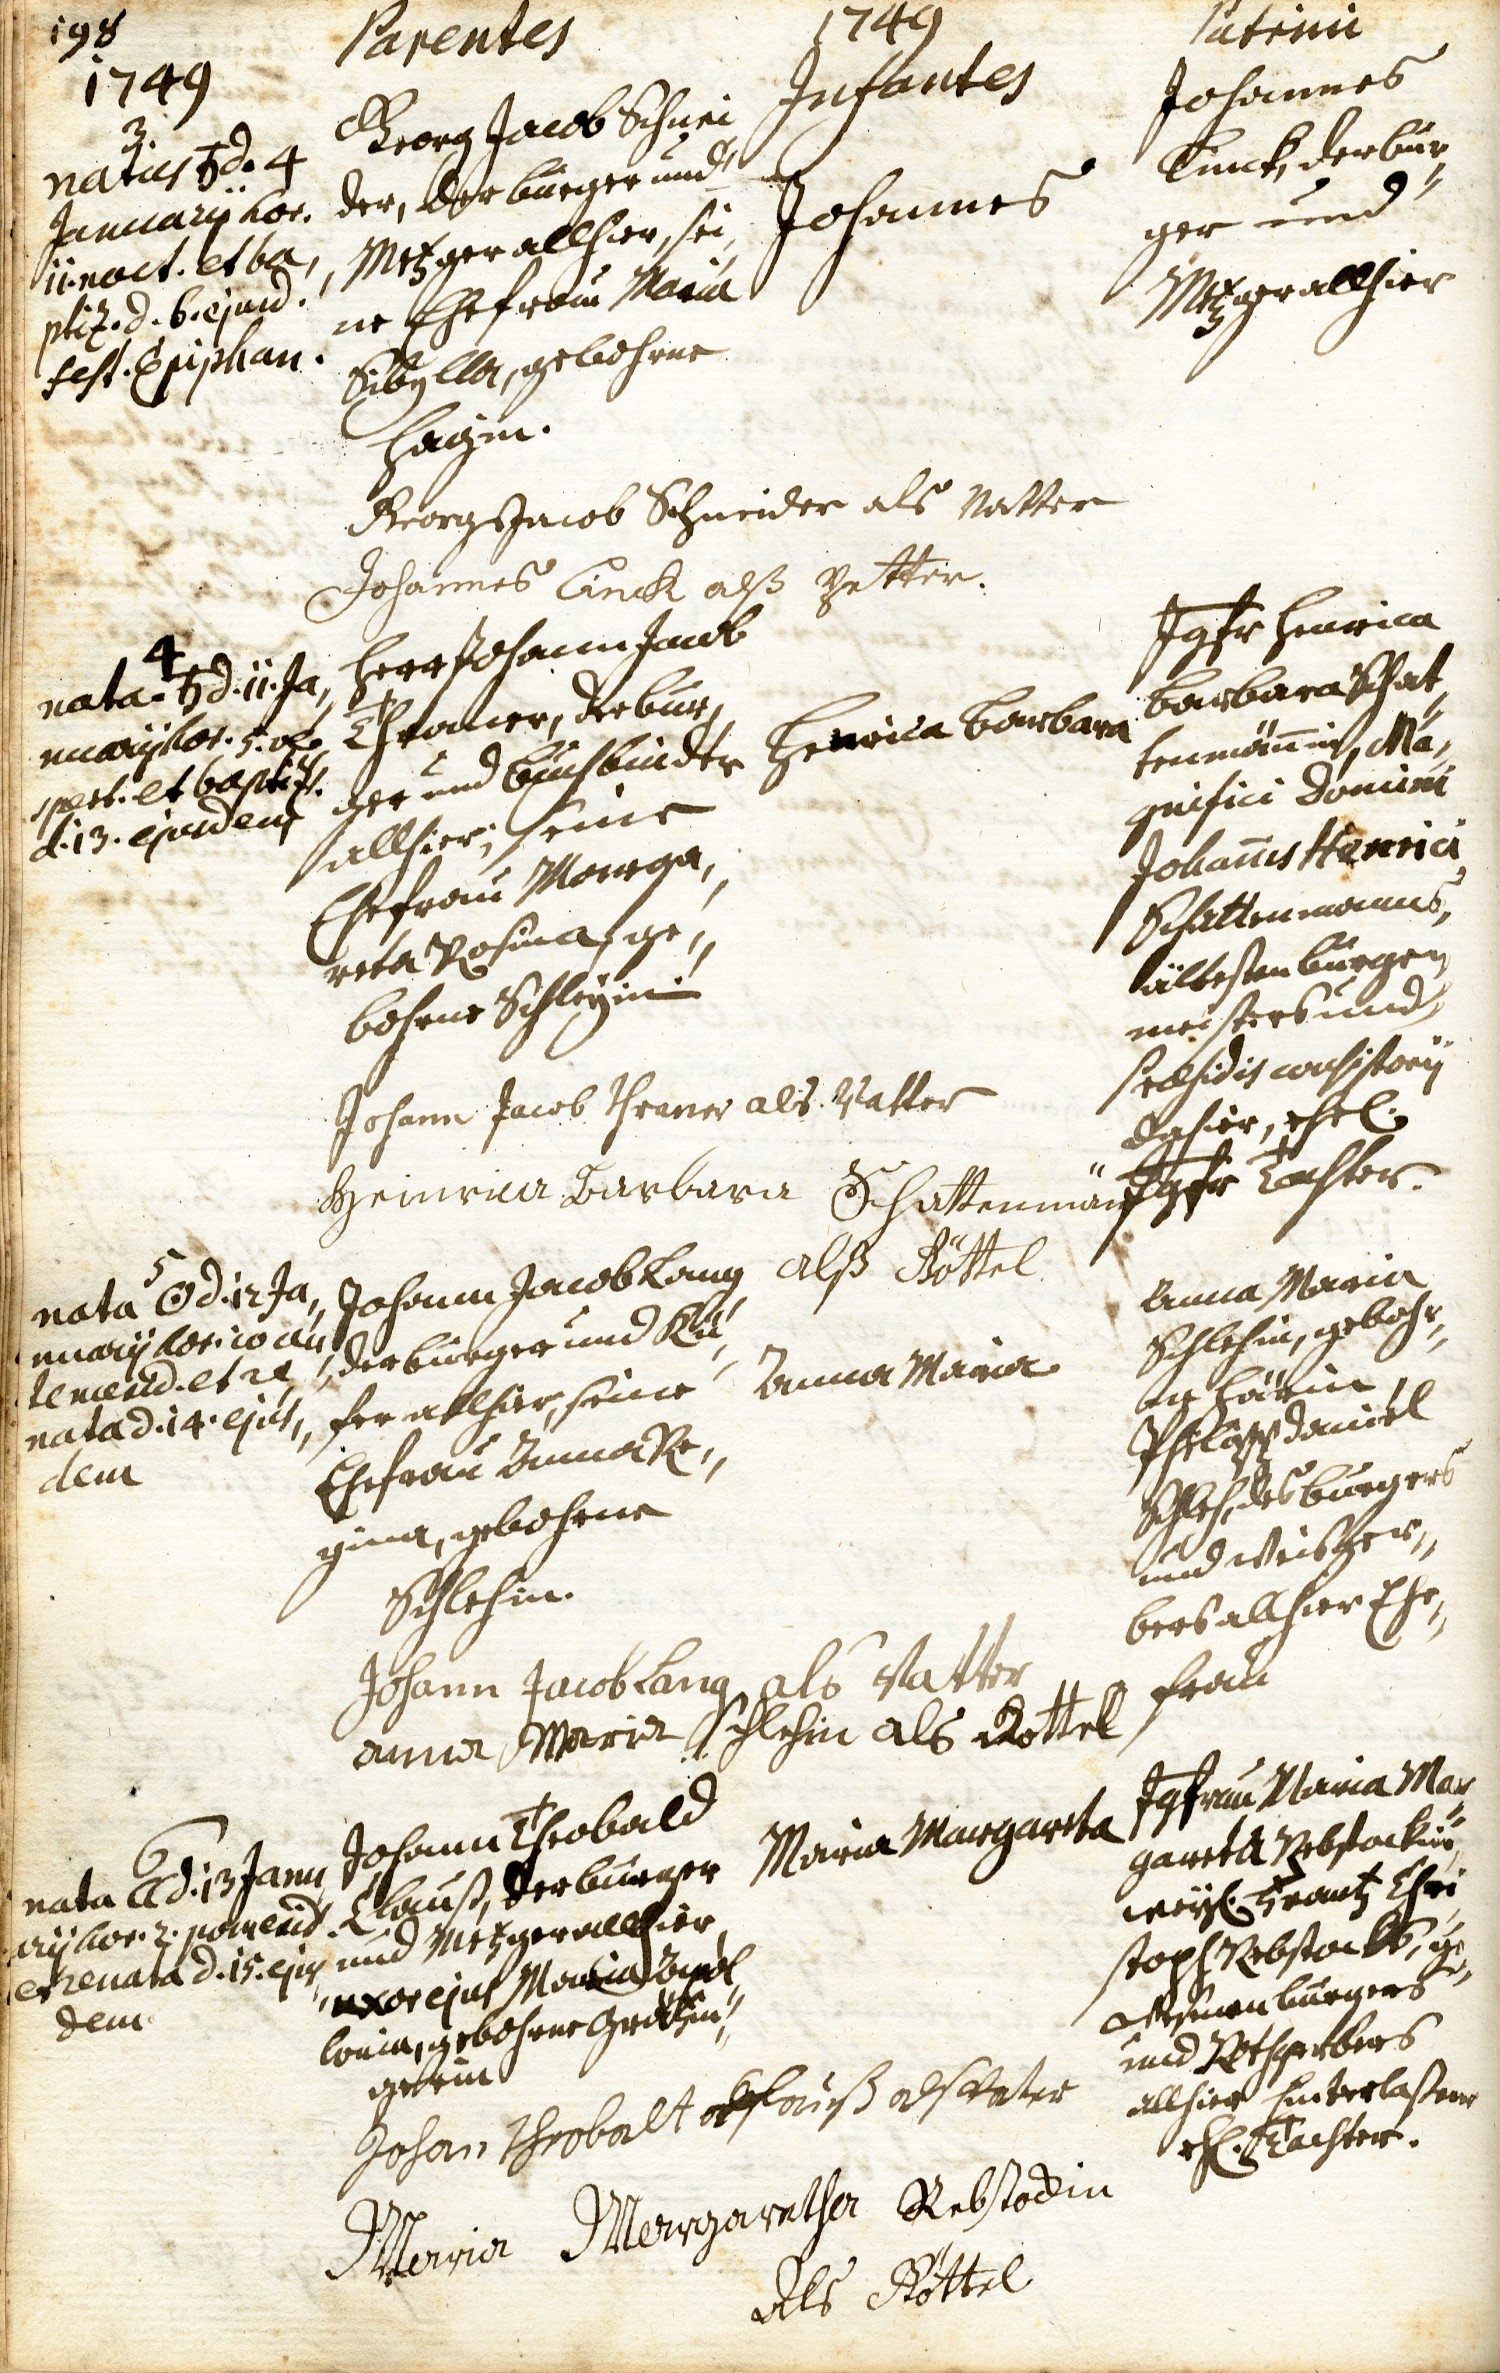 198
1749
Parentes
1749
Infantes
Patrini
3.
natus ♄ d. 4
Januarij hor.
11. noct. et ba„
ptiz. d. 6. ejusd.
fest. Epiphan.
Georg Jacob Schnei„
der, der burger und
Metzger allhier, sei„
ne Ehefrau Maria
Sibylla, gebohrne
Johannes
Johannes
Linck, der bur„
ger und
Metzger allhier
Georg Jacob Schneider als Vatter
Johannes Linck alß Petter.
4
nata ♄ d. 11. Ja„
nuarij hor. 5. ve„
spert. et baptiz.
d. 13. ejusdem
Herr Johann Jacob
Thraner, der bur„
ger und Buchbinder
allhier, seine
Ehefrau Marga„
reta Rosina, ge„
bohrne Schleyin.
Henrica Barbara
Jgfr Henrica
Barbara Schat„
tenmännin, Ma„
gnifici Domini
Johannis Henrici
Schattenmanns,
ältesten burger„
meisters und
Præsidis consistorij
dahier, ehel.
Jgfr Tochter.
Johann Jacob Thraner als Vatter
Heinrica Barbara Schattenmän
alß Göttel
5
nata ☉ d. 12 Ja„
nuarij hor. 10 an
temerid. et re„
nata d. 14. ejus„
dem
Johann Jacob Lang
der burger und Kü„
fer allhier, seine
Ehefrau Anna Re„
gina, gebohrne
Schlehin.
Anna Maria
Anna Maria
Schlehin, gebohr„
Philipp Daniel
Schleh, des burgers
und Weisger„
bers allhier Ehe„
frau
Johann Jacob Lang als Vatter
anna Maria Schlehin als Göttel
6
nata ☾ d. 13 Janu
arij hor. 2. pomerid.
et renata d. 15. ejus
dem
Johann Theobald
Clauß, der burger
und Metzger allhier,
uxor ejus Maria Apol
lonia, gebohrne
Maria Margareta
Jgfrau Maria Mar
gareta Rebstockin,
weyl. Frantz Chri
stoph Rebstocks, ge„
wesenen burgers
und Rothgerbers
allhier hinterlaßene
ehl. Tochter.
Johan Theobalt Clauß als Vater
Maria Margaretha Rebstockin
Als Göttel